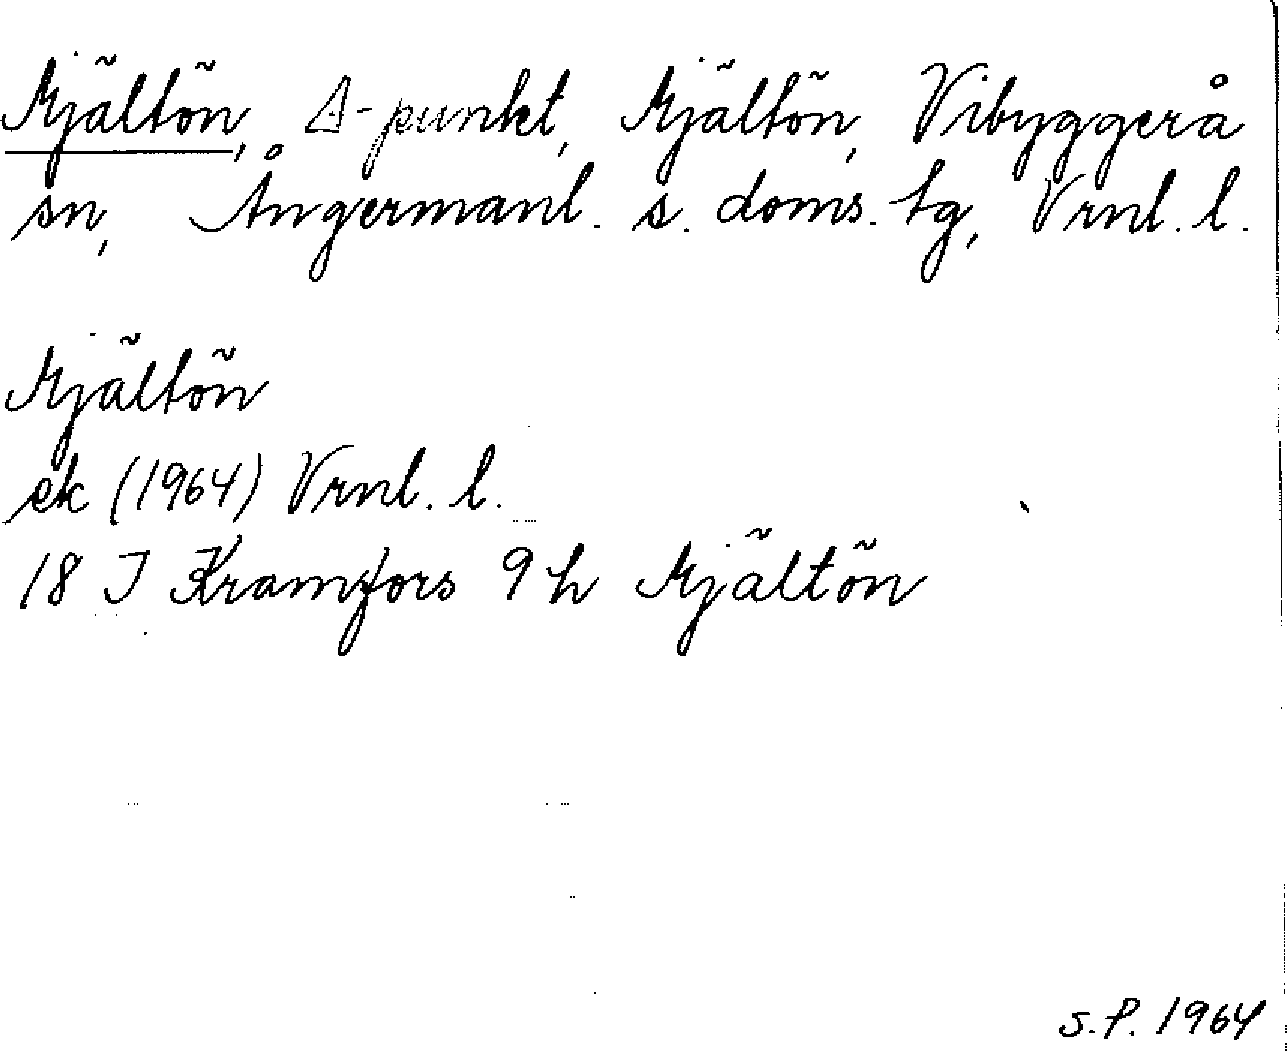 Mjältön, Δ-punkt, Mjältön, Vibyggerå
sn, Ångermanl. s. doms. tg, Vrnl. l.
Mjältön
ek (1964) Vrnl. l.
18 I Kramfors 9 h Mjältön
S.P. 1964